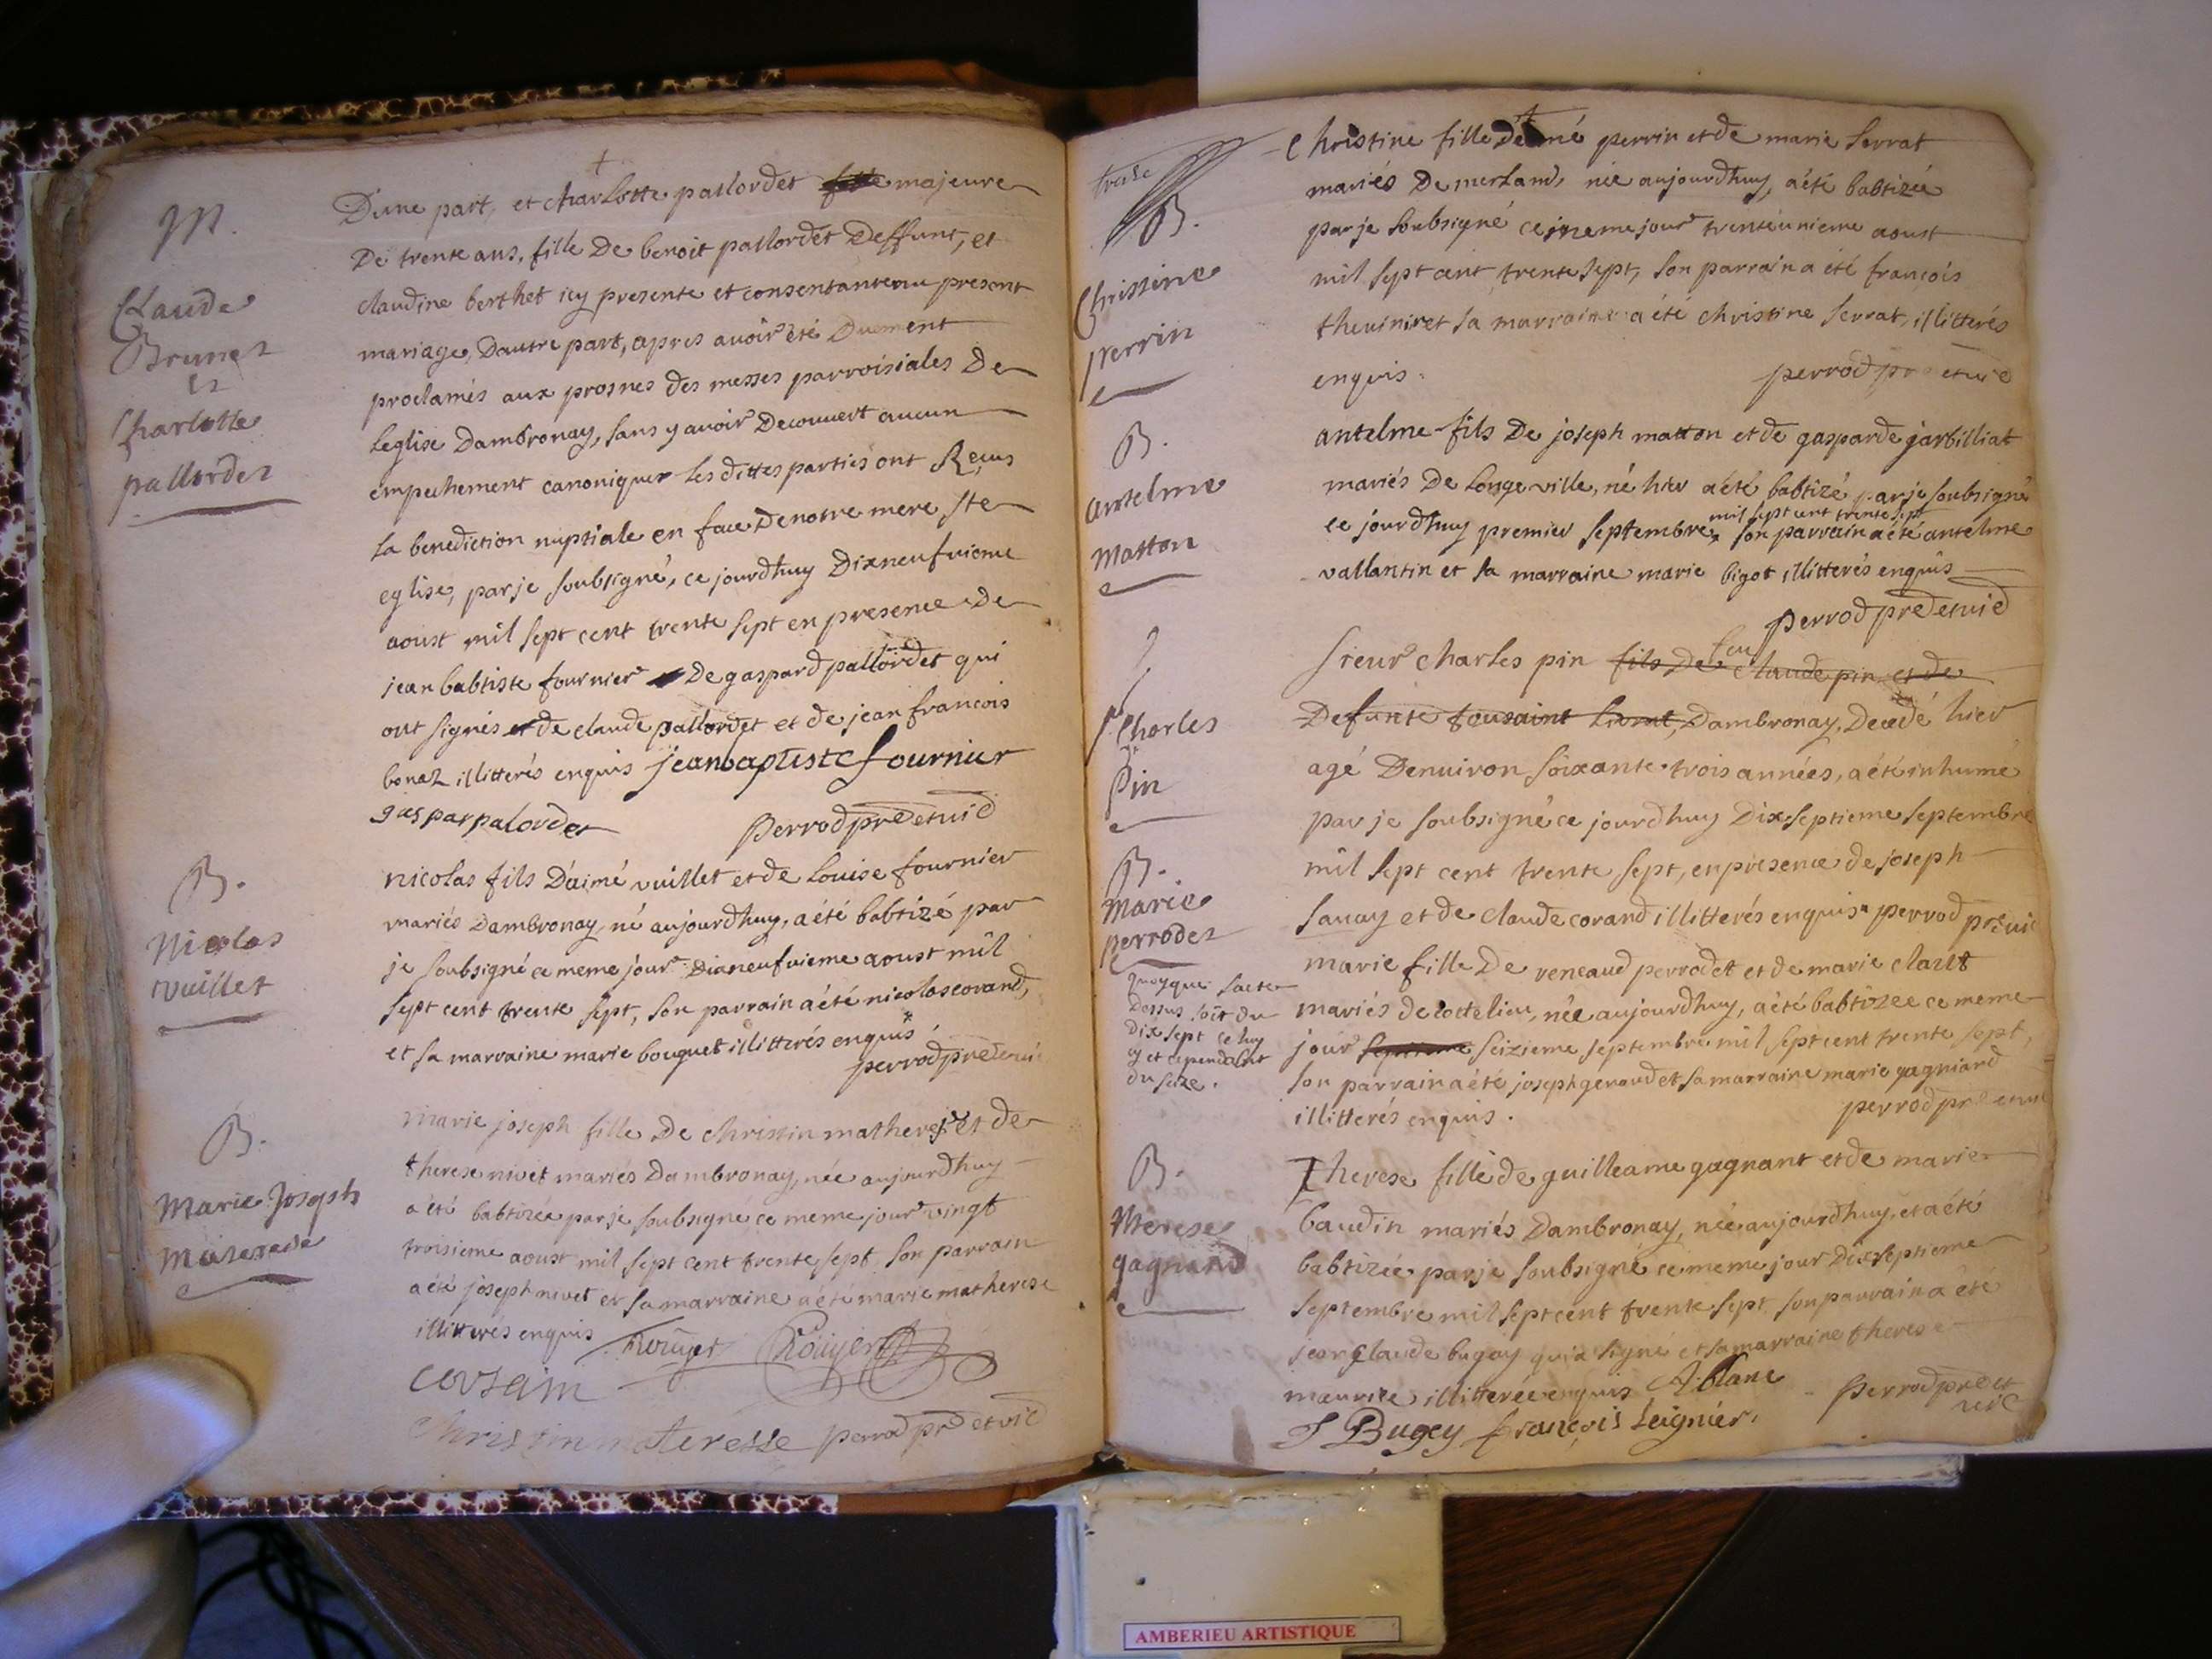 M.
Claude
Brunet
et
Charlotte
pallordet
D'une part, et charlotte pallordet majeure
De trente ans, fille De benoit pallordet Deffunt, et
claudine berthet icy presente et consentante au present
mariage, Dautre part, apres auoir été Duement
proclamés aux prosnes des messes parroisiales De
Leglise Dambronay, sans y auoir Decouuert aucun
empechement canonique les dittes parties ont Reçus
La benediction nuptiale en face De notre mere ste
eglise, par je soubsigné, ce jourdhuy Dixneufuieme
aoust mil sept cent trente sept en presence De
jean babtiste fournier De gaspard pallordet qui
ont signés et de claude pallordet et de jean francois
bonaz illitterés enquis jean baptiste fournier
gaspar palordet perrod pre et vic
B.
Nicolas
vuillet
nicolas fils D'aimé vuillet et de Louise fournier
mariés Dambronay, né aujourdhuy, a été babtizé par
je soubsigné ce meme jour Dixneufuieme aoust mil
sept cent trente sept, son parrain a été nicolas corand,
et sa marraine marie bouquet illitterés enquis
perrod pre et vic
B.
Marie Joseph
marie joseph fille De christin matherese et de
therese nivet mariés Dambronay, née aujourdhuy
a été babtizée par je soubsigné ce meme jour vingt
troisieme aoust mil sept cent trente sept son parrain
a été joseph nivet et sa marraine a été marie matherese
illitterés enquis Rouyer Rouyer
corsain
Christin materesse perrod pre et vic
treise
B.
Christine
perrin
Christine fille perrin et de marie serrat
mariés De merland, née aujourdhuy, a été babtizée
par je soubsigné ce meme jour trente unieme aoust
mil sept cent trente sept, son parrain a été francois
theuiniret sa marraine a été christine serrat, illitterés
enquis. perrod pre et vic
B.
antelme
Matton
antelme fils De joseph matton et de gasparde jarbilliat
mariés De Longeville, né hier a été babtizé par je soubsigné
mil sept cent trente sept
ce jourdhuy premier septembre son parrain a été antelme
vallantin et sa marraine marie bigot illitterés enquis
perrod pre et vic
S. Charles
Pin
feu
sieur charles pin fils De claude pin et de
Defunte Dambronay, Decedé hier
agé Denuiron soixante trois années, a été inhumé
par je soubsigné ce jourdhuy Dix septieme septembre
mil sept cent trente sept, en presence de joseph
sauay et de claude corand illitterés enquis perrod pre vic
B.
Marie
perrodet
quoyque Lacte
Dessus soit du
Dix sept celuy
cy est cependant
du seize.
marie fille De reneaud perrodet et de marie claret
mariés de, née aujourdhuy, a été babtizee ce meme
jour seizieme septembre mil sept cent trente sept,
son parrain a été joseph genaud et sa marraine marie gagniard
illitterés enquis. perrod pre et vic
B.
therese
gagnand
Therese fille de guilleame gagnant et de marie
baudin mariés Dambronay, née aujourdhuy, et a été
babtizée par je soubsigné ce meme jour Dixseptieme
septembre mil sept cent trente sept son parrain a été
jean claude bugey qui a signé et sa marraine therese
maurice illitterée enquis A blanc perrod pre et
vic
J Bugey françois Leignier.
AMBERIEU ARTISTIQUE